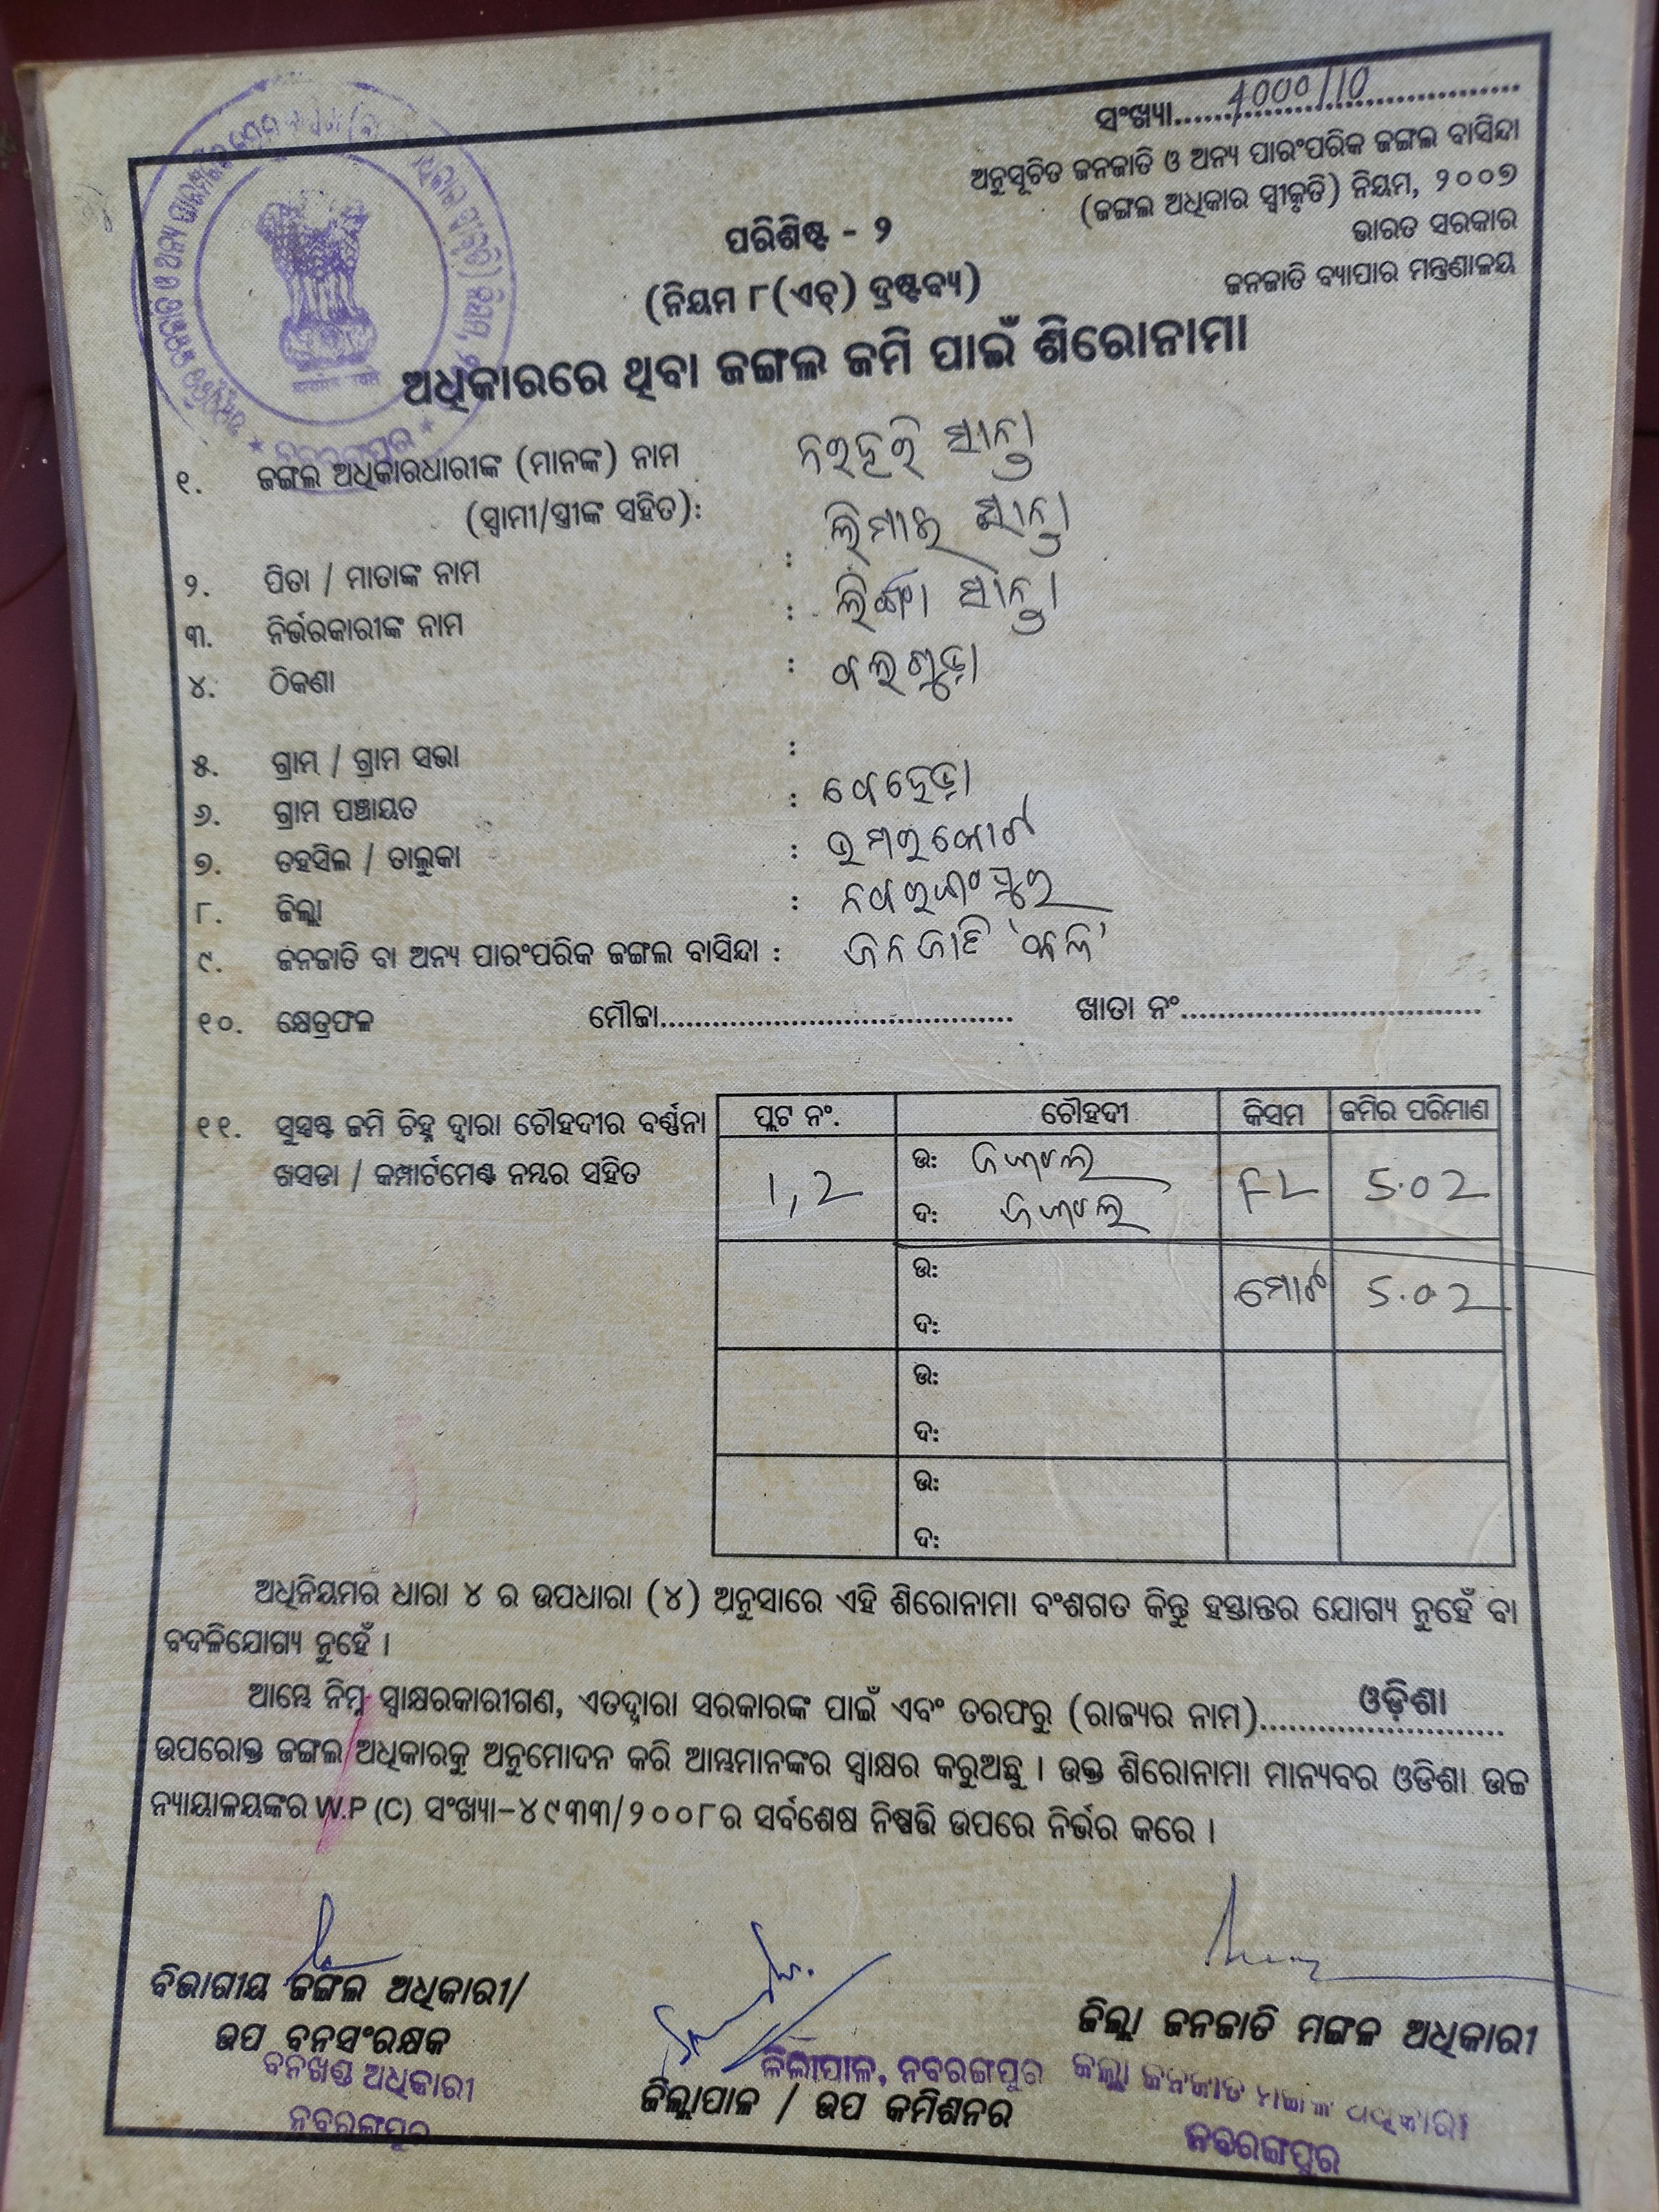 ସଂଖ୍ୟା.....4000/10
ଅନୁସୂଚିତ ଜନଜାତି ଓ ଅନ୍ୟ ପାରଂପରିକ ଜଙ୍ଗଲ ବାସିନ୍ଦା
(ଜଙ୍ଗଲ ଅଧିକାର ସ୍ୱୀକୃତି) ନିୟମ, ୨୦୦୭
ଭାରତ ସରକାର
ଜନଜାତି ବ୍ୟାପାର ମନ୍ତ୍ରଣାଳୟ
ପରିଶିଷ୍ଟ - ୨
(ନିୟମ ୮(ଏଚ୍) ଦ୍ରଷ୍ଟବ୍ୟ)
ଅଧିକାରରେ ଥିବା ଜଙ୍ଗଲ ଜମି ପାଇଁ ଶିରୋନାମା
ନବରଙ୍ଗପୁର
୧. ଜଙ୍ଗଲ ଅଧିକାରଧାରୀଙ୍କ (ମାନଙ୍କ) ନାମ ନରହରି ସାନ୍ତା
(ସ୍ୱାମୀ/ସ୍ତ୍ରୀଙ୍କ ସହିତ):
୨. ପିତା / ମାତାଙ୍କ ନାମ : ସାନ୍ତା
୩. ନିର୍ଭରକାରୀଙ୍କ ନାମ : ସାନ୍ତା
୪. ଠିକଣା :
୫. ଗ୍ରାମ / ଗ୍ରାମ ସଭା :
୬. ଗ୍ରାମ ପଞ୍ଚାୟତ : ବେହେଡ଼ା
୭. ତହସିଲ / ତାଲୁକା : ଉମରକୋଟ
୮. ଜିଲ୍ଲା : ନବରଙ୍ଗପୁର
୯. ଜନଜାତି ବା ଅନ୍ୟ ପାରଂପରିକ ଜଙ୍ଗଲ ବାସିନ୍ଦା : ଜନଜାତି
୧୦. କ୍ଷେତ୍ରଫଳ ମୌଜା..... ଖାତା ନଂ.....
୧୧. ସୁସ୍ପଷ୍ଟ ଜମି ଚିହ୍ନ ଦ୍ୱାରା ଚୌହଦୀର ବର୍ଣ୍ଣନା
ଖସଡା / କମ୍ପାର୍ଟମେଣ୍ଟ ନମ୍ଵର ସହିତ
ପ୍ଲଟ ନଂ. ଚୌହଦୀ କିସମ ଜମିର ପରିମାଣ
1, 2 ଉ: ଜଙ୍ଗଲ FL 5.02
ଦ: ଜଙ୍ଗଲ
ଉ: ମୋଟ 5.02
ଦ:
ଉ:
ଦ:
ଉ:
ଦ:
ଅଧିନିୟମର ଧାରା ୪ ର ଉପଧାରା (୪) ଅନୁସାରେ ଏହି ଶିରୋନାମା ବଂଶଗତ କିନ୍ତୁ ହସ୍ତାନ୍ତର ଯୋଗ୍ୟ ନୁହେଁ ବା
ବଦଳିଯୋଗ୍ୟ ନୁହେଁ ।
ଆମ୍ଭେ ନିମ୍ନ ସ୍ୱାକ୍ଷରକାରୀଗଣ, ଏତଦ୍ଦ୍ୱାରା ସରକାରଙ୍କ ପାଇଁ ଏବଂ ତରଫରୁ (ରାଜ୍ୟର ନାମ).....ଓଡ଼ିଶା
ଉପରୋକ୍ତ ଜଙ୍ଗଲ ଅଧିକାରକୁ ଅନୁମୋଦନ କରି ଆମ୍ଭମାନଙ୍କର ସ୍ୱାକ୍ଷର କରୁଅଛୁ । ଉକ୍ତ ଶିରୋନାମା ମାନ୍ୟବର ଓଡିଶା ଉଚ୍ଚ
ନ୍ୟାୟାଳୟଙ୍କର W.P (C) ସଂଖ୍ୟା-୪୯୩୩/୨୦୦୮ର ସର୍ବଶେଷ ନିଷ୍ପତ୍ତି ଉପରେ ନିର୍ଭର କରେ ।
ବିଭାଗୀୟ ଜଙ୍ଗଲ ଅଧିକାରୀ/
ଉପ ବନସଂରକ୍ଷକ
ବନଖଣ୍ଡ ଅଧିକାରୀ
ନବରଙ୍ଗପୁର
ଜିଲ୍ଲାପାଳ, ନବରଙ୍ଗପୁର
ଜିଲ୍ଲାପାଳ / ଉପ କମିଶନର
ଜିଲ୍ଲା ଜନଜାତି ମଙ୍ଗଳ ଅଧିକାରୀ
ଜିଲ୍ଲା ଜନଜାତି ମଙ୍ଗଳ ଅଧିକାରୀ
ନବରଙ୍ଗପୁର